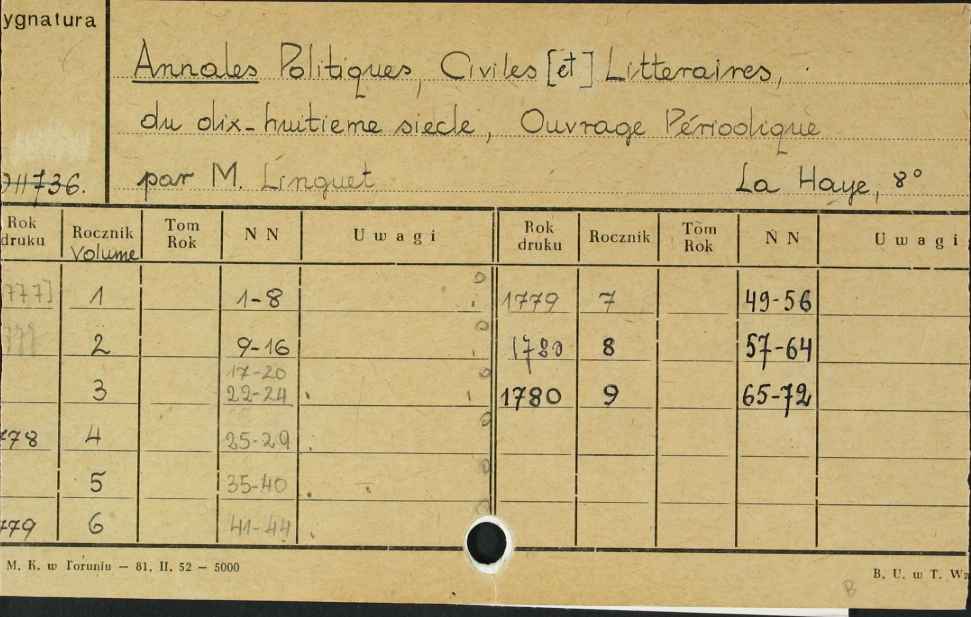 ygnatura
Annales Politiques, Civiles [et] Litteraires,
du dix-huitieme siecle, Ouvrage Périodique
736.
par M. Linguet La Haye, 8°
Rok druku Rocznik Volume Tom Rok N N Uwagi Rok druku Rocznik Tom Rok N N Uwagi
777] 1 1-8 1779 7 49-56
2 9-16 1780 8 57-64
17-20
3 22-24 1780 9 65-72
778 4 25-29
5 35-40
779 6 41-44
M. K. w Toruniu — 81, II, 52 — 5000 B. U. w T.
B